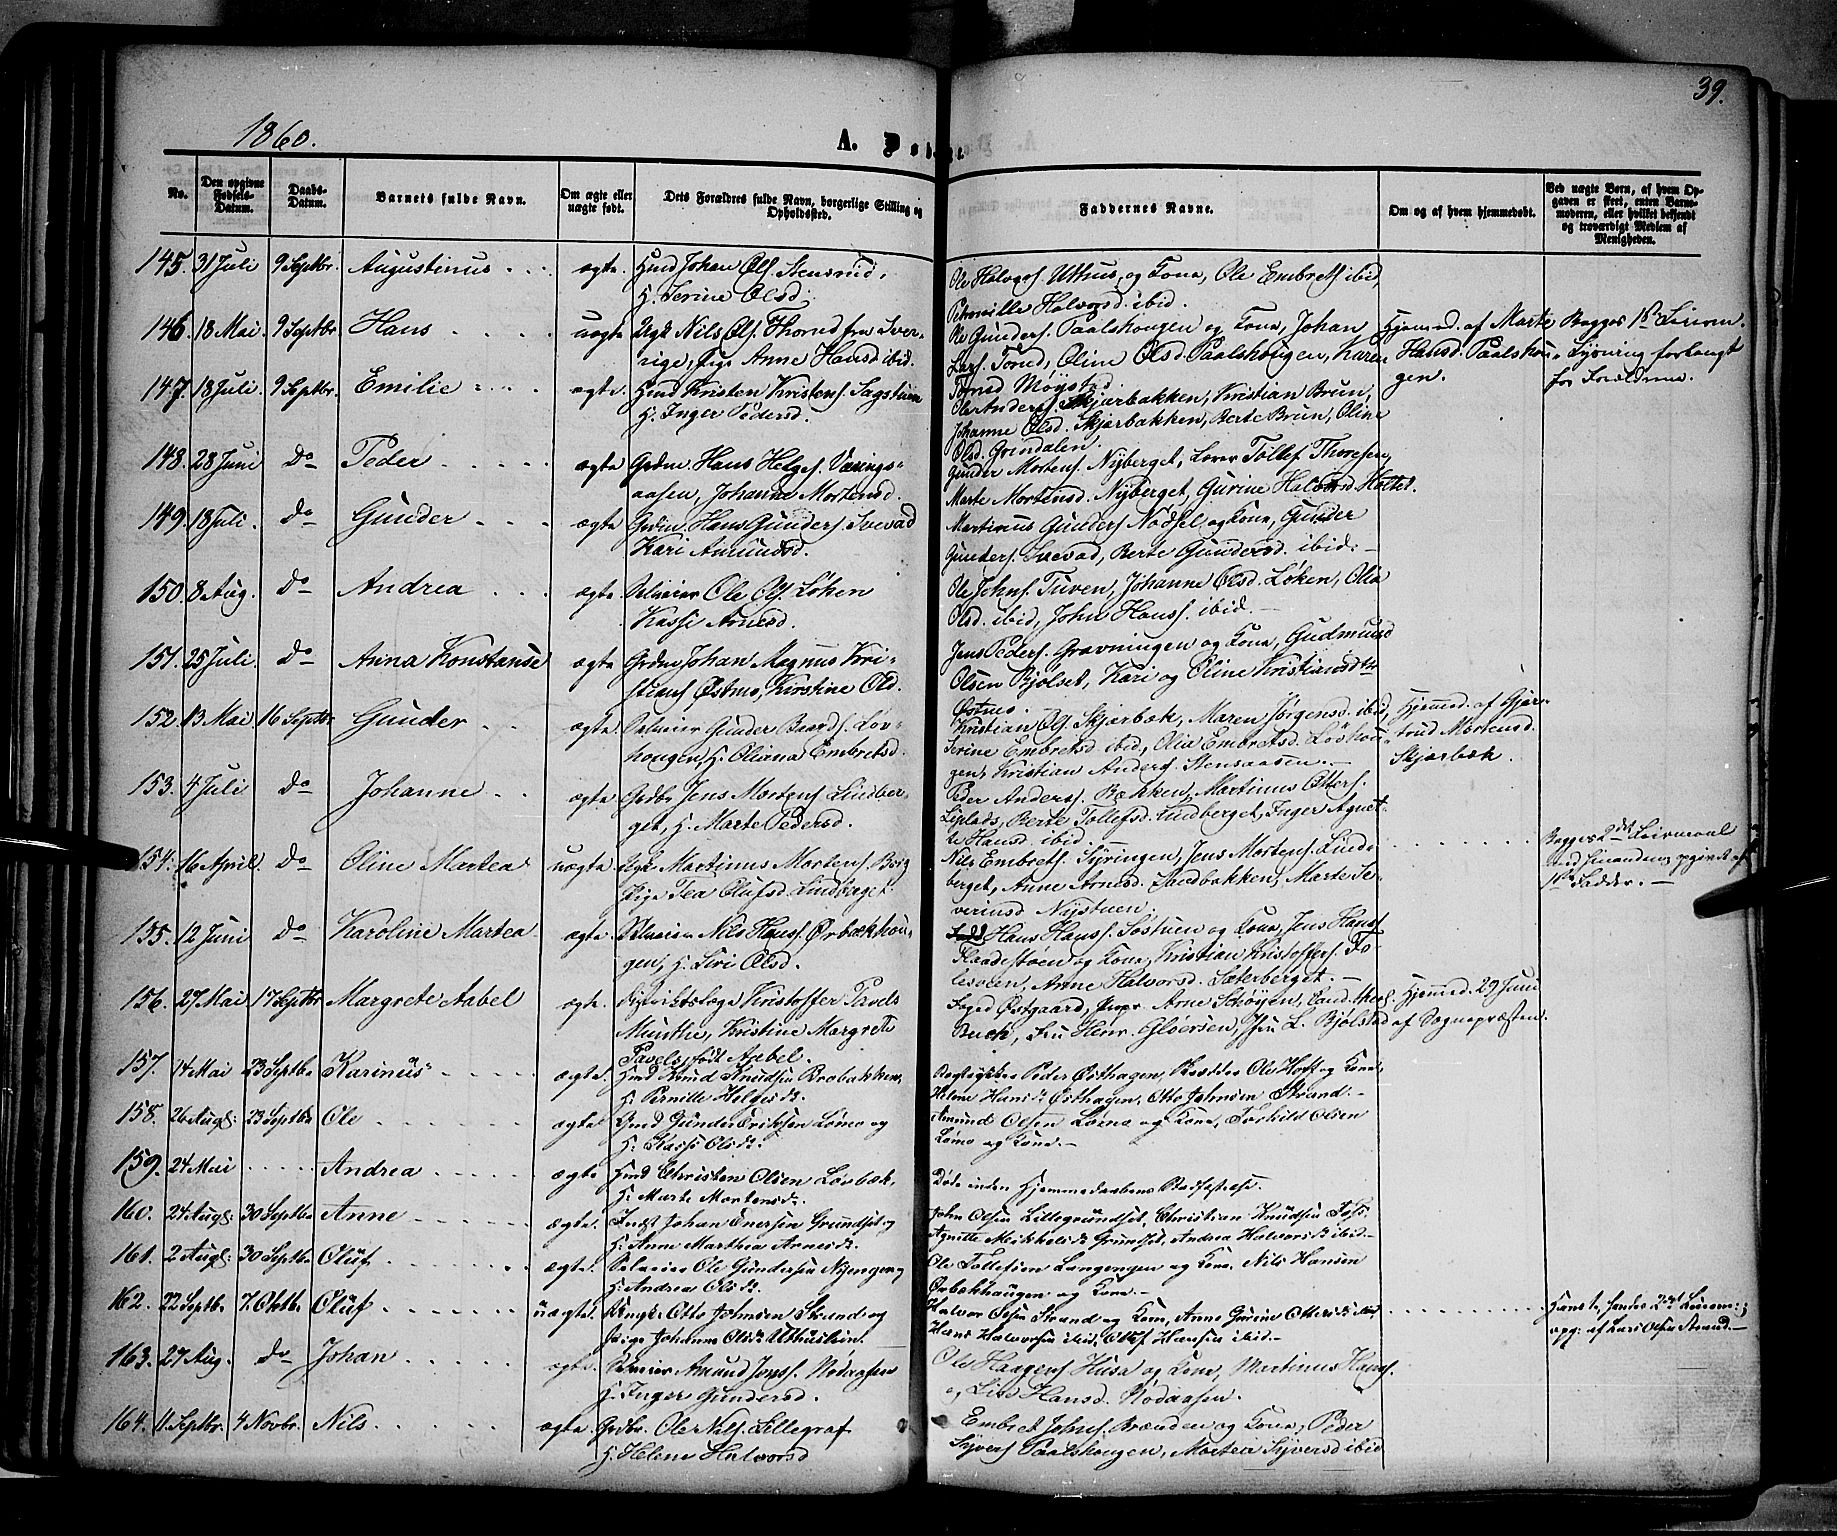 39.
1860.
A. Døbte.
No.
Den opgivne Fødsels-Datum.
Daabs-Datum.
Barnets fulde Navn.
Om ægte eller uægte født.
Dets Forældres fulde Navn, borgerlige Stilling og Opholdssted.
Faddernes Navne.
Om og af hvem hjemmedøbt.
Ved uægte Børn, af hvem Opgaven er skeet, enten Barnemoderen, eller hvilket bekjendt og troværdigt Medlem af Menigheden.
145. 31 Juli 9 Septbr. Augustinus ægte. Hmd Johan Ols. Stensrud,
H. Serine Olsd.
Ole Halvors. Uthus og Kona, Ole Embrets. ibid,
Pernille Halvorsd. ibid.
146. 18 Mai 9 Septbr Hans uægte Ugk Nils Ols. Thorud fra Sver-
rige, Pige Anne Hansd ibid.
Ole Gunders. Paalshougen og Kona, Johan
Lars. Torud, Oline Olsd. Paalshougen, Karen
Møystad.
Hjemmed. af Marte
Hansd. Paalshou-
gen.
Begges 1ste Leierm.
for Forældrene.
147. 18 Juli 9 Septbr. Emilie ægte. Hmd Kristen Kristens. Sagstuen
H. Inger Pedersd.
Ole Anders. Skjærbakken, Kristian Brun,
Johanne Olsd. Skjærbakken, Berte Brun, Oline
Olsd. Grindalen.
148. 28 Juni do Peder ægte Grdm Hans Helges. Værings-
aasen, Johanne Mortensd.
Gunder Mortens. Nyberget, Tollef Thoresen,
Marte Mortensd. Nyberget, Gurine Halvorsd.
149. 18 Juli. do Gunder ægte Grdm. Hans Gunders. Svevad
Kari Amundsd.
Martinus Gunders Nødsel og Kona, Gunder
Gunders. Svevad, Berte Gundersd. ibid.
150. 8 Aug. do Andrea ægte Selveier Ole Ols. Løken
Kassi Arnesd.
Ole Johns. Tuven, Johanne Olsd. Løken, Olia
Olsd. ibid, John Hanss. ibid.
151. 25 Juli. do Anna Konstanse ægte Grdm Johan Magnus Kri-
stians Østmo, Kirstine Old.
Jens Peders. Gravningen og Kona, Gudmund
Olsen Bjølset, Kari og Oline Kristiansd.
Østmo.
152. 13 Mai 16 Septbr Gunder ægte. Selveier Gunder Baards. Løv-
hougen, H. Oliana Embretsd.
Kristian Ols. Skjærbæk, Maren Jørgensd. ibid,
Serine Embretsd ibid, Olia Embretsd. Løvhou-
gen, Kristian Anders. Stensaasen.
Hjemmed. af Gjær-
trud Mortensd.
Skjærbæk.
153. 4 Juli do Johanne ægte Grdbr Jens Mortens. Lindber-
get, H. Marte Pedersd.
Peder Anders. Bækken, Martinus Otters.
Berte Tollefsd. Lindberget, Inger Agnet-
te Hansd. ibid.
154. 16 April. do Oline Martea uægte Ugk Martinus Mortens. Berg
Pige Tea Olufsd. Lindberget
Nils Embrets. Syringen, Jens Mortens. Lind-
berget, Anne Arnesd. Sandbakken, Marte Se-
verinsd Nystuen.
Begges 2det Leiermaal
1ste Fadder.
155. 12 Juni do Karoline Martea ægte. Selveier Nils Hanss. Ørbækhou-
gen, H. Siri Olsd.
Hans Hanss. Søstuen og Kona, Jens Hanss
Flaadestøen og Kona, Kristian Kristoffers.
Anne Halvorsd. Sæterberget.
156. 27 Mai 17 Septbr Margrete Aabel ægte. Distriktslæge Kristoffer Pavels
Munthe, Kristine Margrete
Pavels, født Aabel.
Foged Østgaard, Arne Schøyen,
Buch, Fru Henr. Gløersen, Jfru L. Bjølstad
Hjemmed. 29 Juni
af Sognepræsten.
157. 14 Mai 23 Septbr Karinus ægte. Hmd Knud Knudsen Brobakken,
H. Pernille Helgesdr.
Peder Østhagen, Ole Hoff og Kone,
Helene Hansdr Østhagen, Otto Johnsen Strand.
158. 26 Aug. 23 Septbr Ole ægte Hmd Gunder Eriksen Lømo og
H. Kassi Olsdr.
Amund Olsen Lømo og Kone, Torkild Olsen
Lømo og Kone.
159. 24 Mai Andrea ægte Hmd Christen Olsen Løvbæk,
H. Marte Mortensdr.
Døde inden Hjemmedaabens Stadfæstelse.
160. 24 Aug: 30 Septbr Anne ægte. Indst Johan Enersen Grundset og
H. Anne Marthea Arnesdr.
John Olsen Lillegrundset, Christian Knudsen
Agnette Mikkelsdr Grundset, Andrea Halvorsdr ibid
161. 2 Aug: 30 Septbr Oluf ægte. Selveier Ole Gundersen Nyenget og
H. Andrea Olsdr.
Ole Tollefsen Langengen og Kone. Nils Hansen
Ørbækhaugen og Kone.
162. 22 Septbr 7. Oktbr. Oluf uægte. Ungk. Otto Johnsen Strand og
Pige Johanne Olsdr Uthusleien.
Halvor Olsen Strand og Kone, Anne Gurine Ottersdr ibid,
Hans Halvorsen ibid, Otto Hansen ibid.
opg: af Lars Olsen Strand.
163. 27 Aug. do Johan ægte. Selveier Amund Jonss. Nødaasen
H. Inger Gundersd.
Ole Haagens Husa og Kone, Martinus Hanss.
og Lise Hansd. Nødaasen.
164. 11 Septbr. 4 Novbr. Nils ægte Grdbr. Ole Nils. Lillegraf
H. Helene Halvorsd
Embret Johns. Brænden og Kona, Peder
Syvers Paalshougen, Martea Syversd ibid